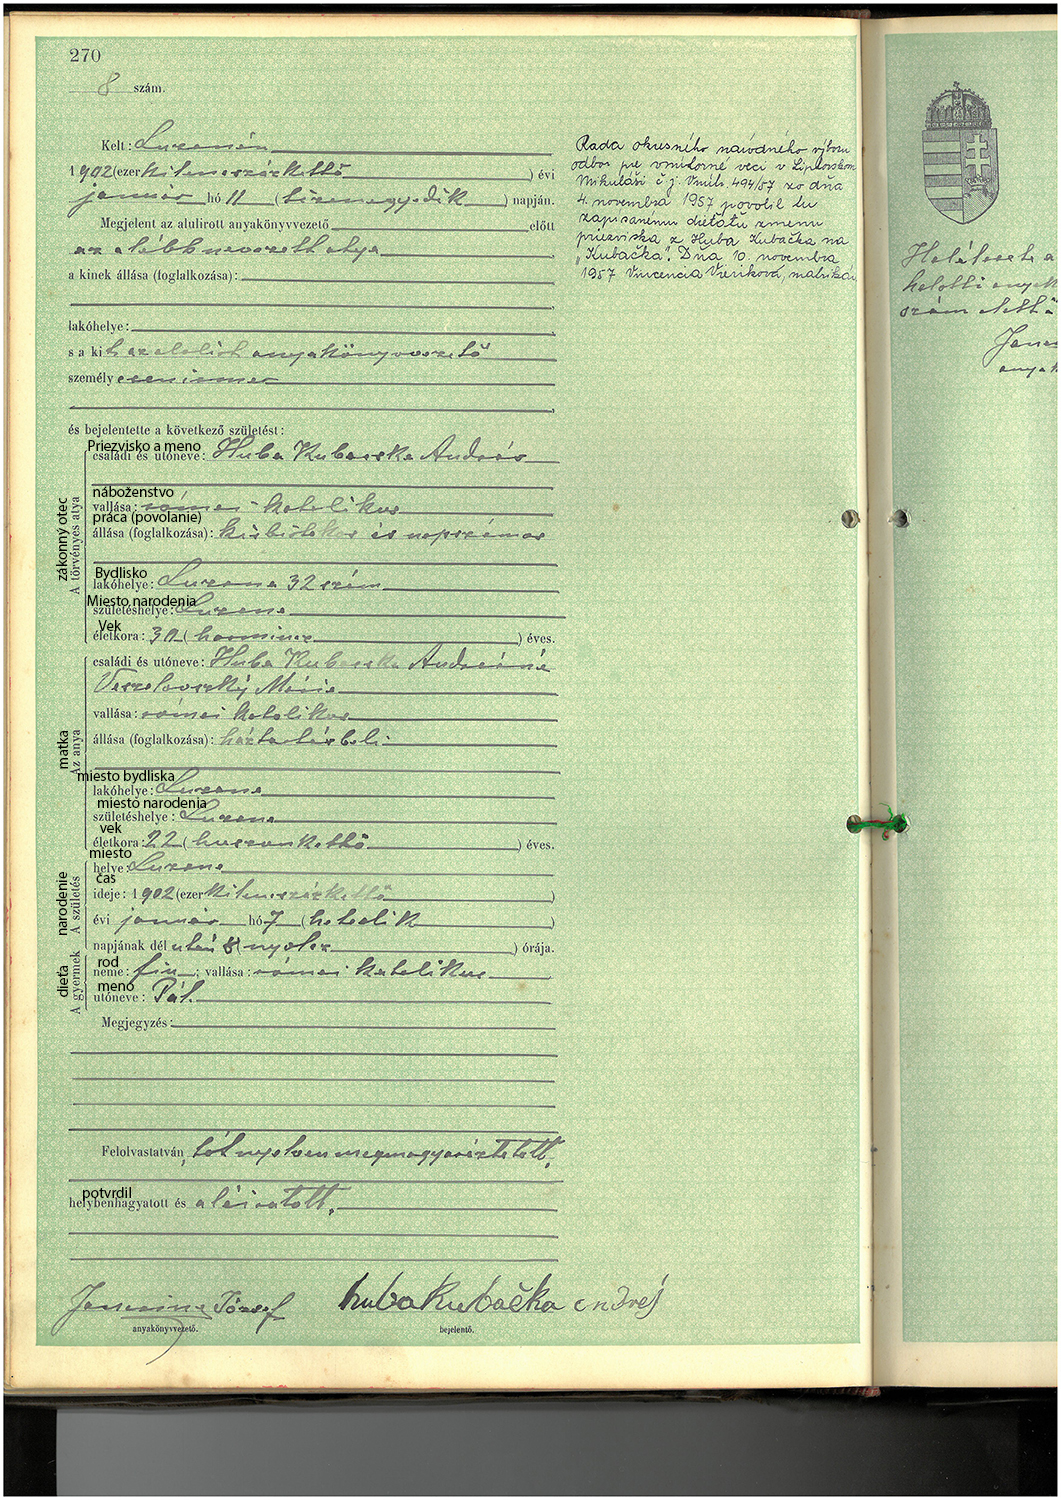 270
8 szám.
Kelt: Luzsnán
1902 (ezerkilencszázkettő) évi
január hó 11 (tizenegyedik) napján.
Megjelent az alulirott anyakönyvvezető előtt
az alább nevezett atya
a kinek állása (foglalkozása):
lakóhelye:
s a kit az alulirt anyakönyvvezető
személyesen ismer
és bejelentette a következő születést:
Priezvisko a meno
családi és utóneve: Huba Kubacska András
zákonný otec
A törvényes atya
náboženstvo
vallása: római katolikus
práca (povolanie)
állása (foglalkozása): kisbirtokos és napszámos
Bydlisko
lakóhelye: Luzsna 32 szám
Miesto narodenia
születéshelye: Luzsna
Vek
életkora: 30 (harmincz) éves.
matka
Az anya
családi és utóneve: Huba Kubacska Andrásné
Veszelovszký Mária
vallása: római katolikus
állása (foglalkozása): háztartásbeli
miesto bydliska
lakóhelye: Luzsna
miesto narodenia
születéshelye: Luzsna
vek
életkora: 22 (huszonkettő) éves.
narodenie
A születés
miesto
helye: Luzsna
čas
ideje: 1902 (ezerkilencszázkettő)
évi január hó 7 (hetedik)
napjának dél után 8 (nyolcz) órája.
dieťa
A gyermek
rod
neme: fiu; vallása: római katolikus
meno
utóneve: Pál.
Megjegyzés:
Felolvastatván, tót nyelven megmagyaráztatott,
potvrdil
helybenhagyatott és aláiratott.
Jancsina József
anyakönyvvezető.
huba Kubačka Endréj
bejelentő.
Rada okresného národného výboru
odbor pre vnútorné veci v Liptovskom
Mikuláši č. j. Vnútr. 494/57 zo dňa
4. novembra 1957 povolil tu
zapísanému dieťaťu zmenu
priezviska z Huba Kubačka na
„Kubačka". Dňa 10. novembra
1957 Vincencia Vieriková, matrikár
a
halotti anyak
szám alatt
anyak